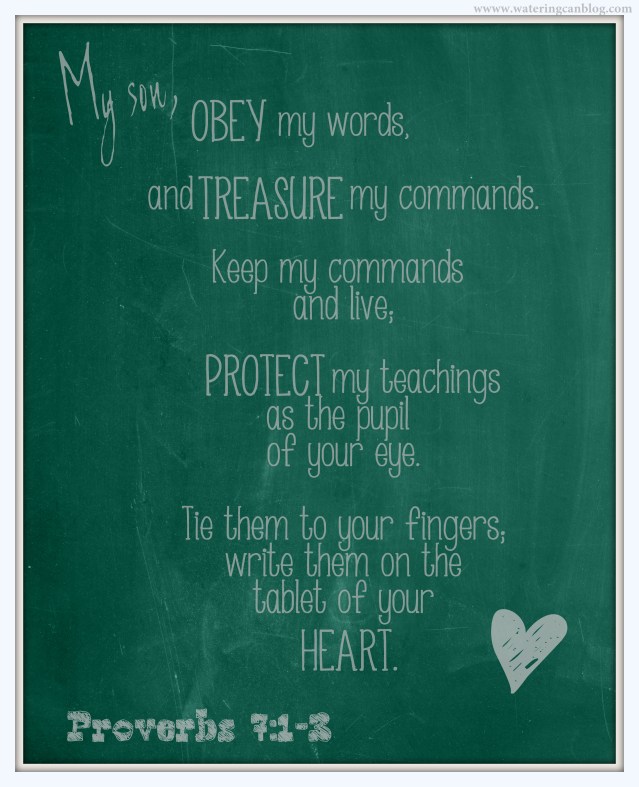 www.wateringcanblog.com
My son, OBEY my words,
and TREASURE my commands.
Keep my commands
and live;
PROTECT my teachings
as the pupil
of your eye.
Tie them to your fingers;
write them on the
tablet of your
HEART.
Proverbs 7:1-3